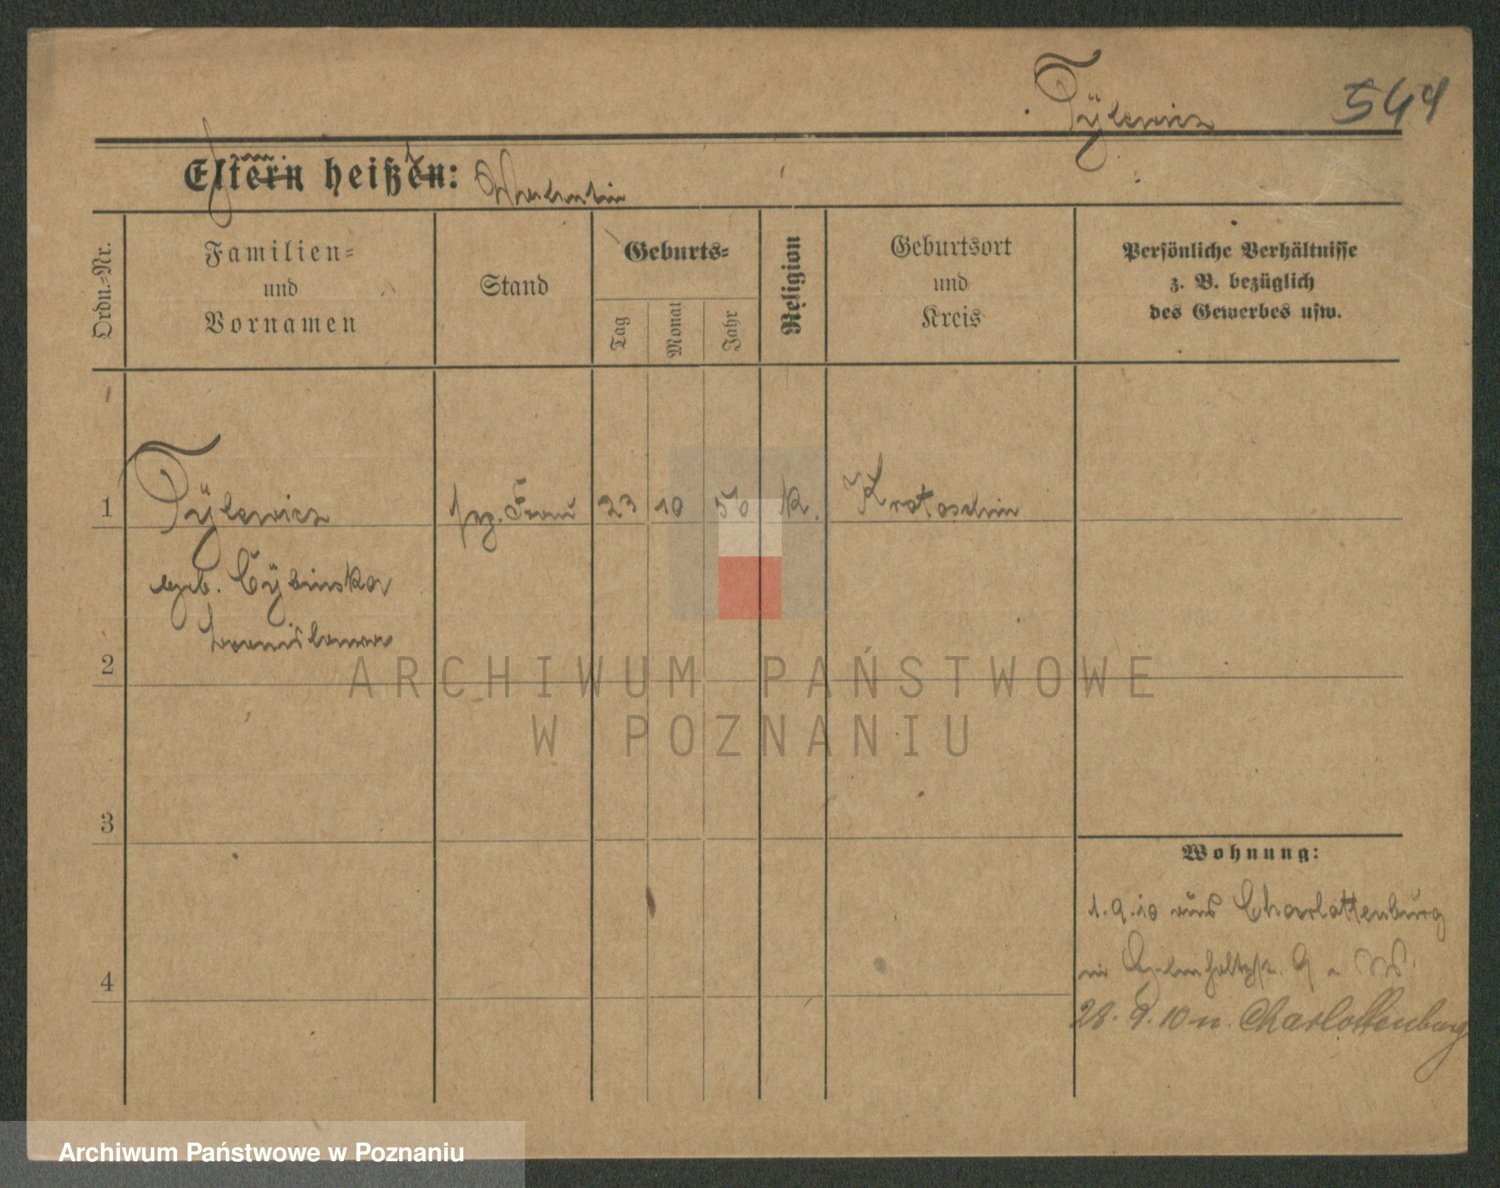 Tÿlewicz 544
Eltern heißen: Valentin
Ordn.-Nr.
Familien-
und
Vornamen
Stand
Geburts-
Tag
Monat
Jahr
Religion
Geburtsort
und
Kreis
Persönliche Verhältnisse
z. B. bezüglich
des Gewerbes usw.
1 Tÿlewicz Frau 23 10 50 K. Krotoschin
geb. Cÿbinska
2
ARCHIWUM PAŃSTWOWE
W POZNANIU
3
Wohnung:
1.9.10 aus Charlottenburg
4
28. 9. 10 n. Charlottenburg
Archiwum Państwowe w Poznaniu